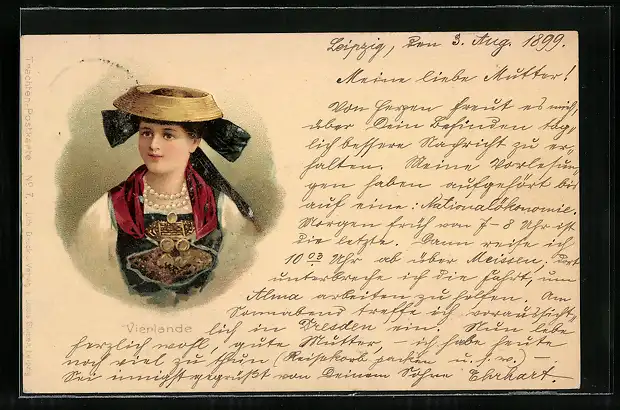 Leipzig, den 3. Aug. 1899.
Meine liebe Mutter!
Von Herzen freut es mich,
über Dein Befinden täg-
lich bessere Nachricht zu er-
halten. Meine Vorlesun-
gen haben aufgehört bis
auf eine: Nationalökonomie.
Morgen früh von 7-8 Uhr ist
die letzte. Dann reise ich
10 03 Uhr ab über Meissen, dort
unterbreche ich die Fahrt, um
Alma arbeiten zu helfen. Am
Sonnabend treffe ich voraussicht-
lich in Dresden ein. Nun lebe
herzlich wohl, gute Mutter, - ich habe heute
noch viel zu thun (Reisekorb packen u. s. w.) -.
Sei innigst gegrüßt von Deinem Sohne Ehrhart.
Vierlande
Trachten-Postkarte No 7.